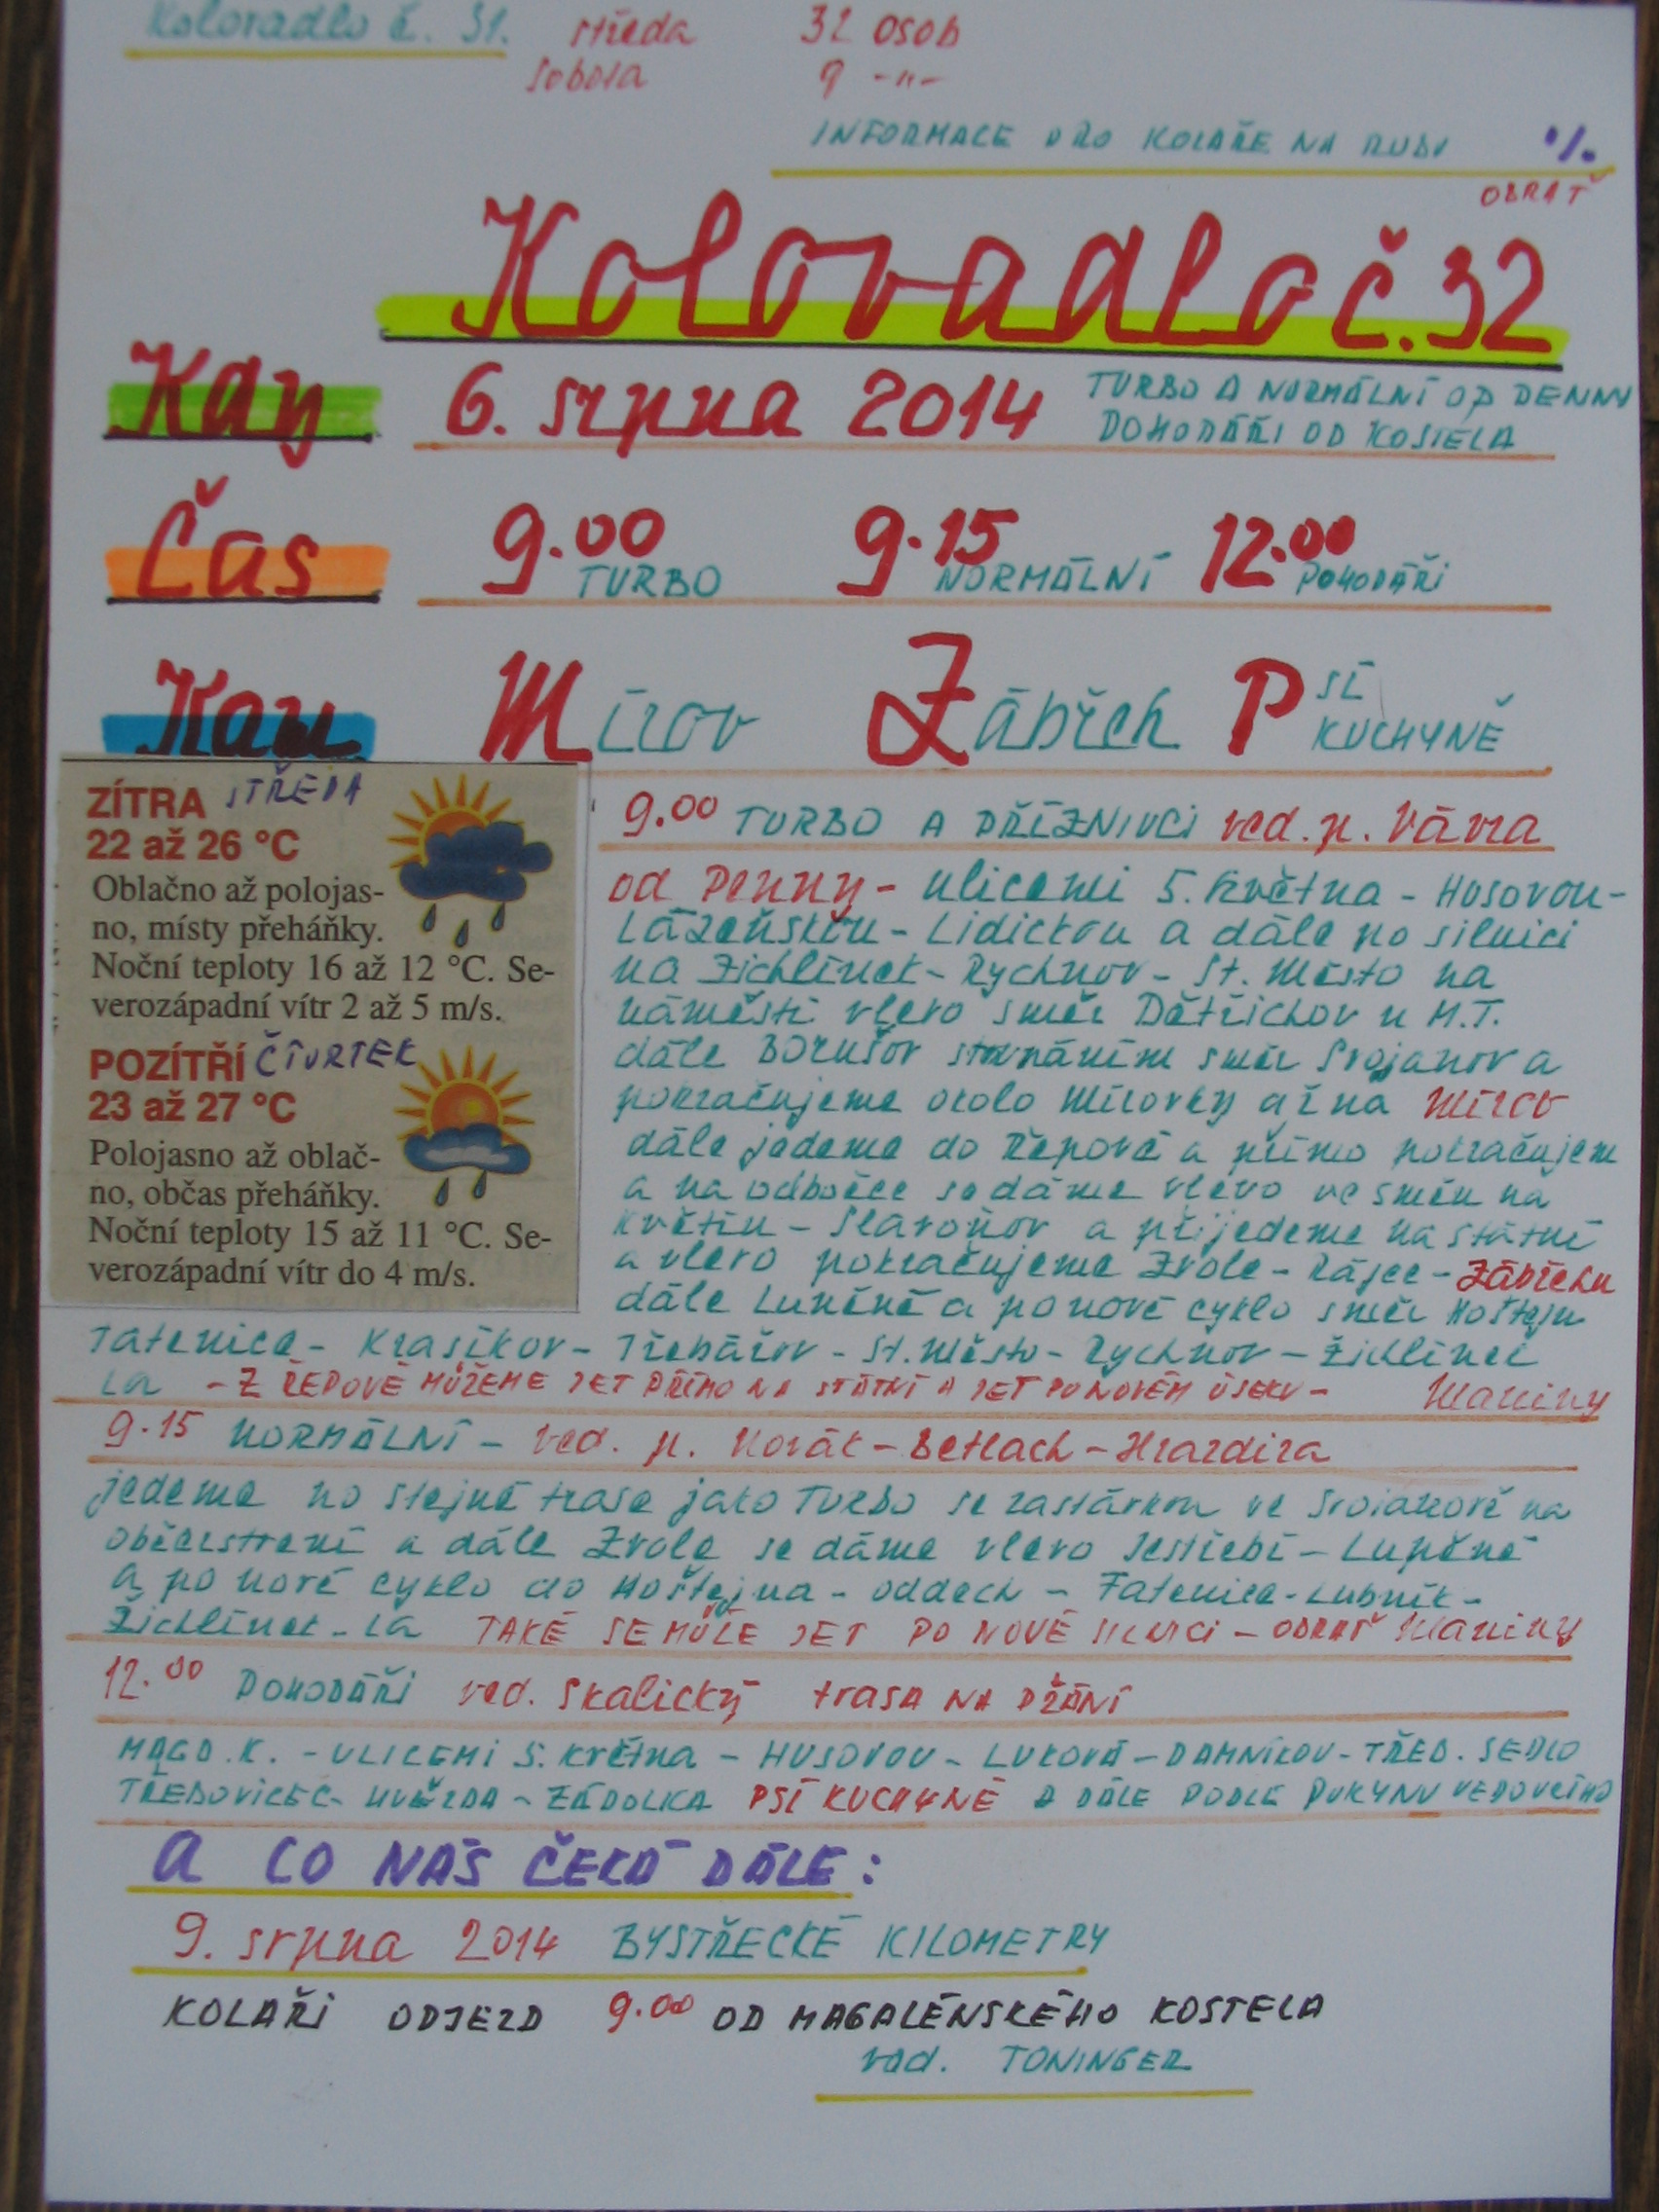 Kolovadlo č. 31. středa 32 osob
sobota 9 -"-
INFORMACE PRO KOLAŘE NA RUBU ./.
OBRAŤ
Kolovadlo č. 32
Kdy 6. srpna 2014 TURBO A NORMÁLNÍ OD PENNY
POHODÁŘI OD KOSTELA
Čas 9.00 TURBO 9.15 NORMÁLNÍ 12.00 POHODÁŘI
Kam Mírov Zábřeh PSÍ KUCHYNĚ
ZÍTRA STŘEDA
22 až 26 °C
Oblačno až polojas-
no, místy přeháňky.
Noční teploty 16 až 12 °C. Se-
verozápadní vítr 2 až 5 m/s.
POZÍTŘÍ ČTVRTEK
23 až 27 °C
Polojasno až oblač-
no, občas přeháňky.
Noční teploty 15 až 11 °C. Se-
verozápadní vítr do 4 m/s.
9.00 TURBO A PŘÍZNIVCI ved. p. Vávra
od Penny - ulicemi 5. května - Husovou -
Lázeňskou - Lidickou a dále po silnici
na Žichlínek - Rychnov - St. Město na
náměstí vlevo směr Dětřichov u M.T.
dále Borušov stoupáním směr Svojanov a
pokračujeme okolo Mírovky až na Mírov
dále jedeme do Řepové a přímo pokračujem
a na odbočce se dáme vlevo ve směru na
Květín - Slavoňov a přijedeme na státní
a vlevo pokračujeme Zvole - Rájec - Zábřehu
dále Lupěné a po nové cyklo směr Hoštejn
Tatenice - Krasíkov - Třebářov - St. Město - Rychnov - Žichlínek
La - Z ŘEPOVÉ MŮŽEME JET PŘÍMO NA STÁTNÍ A JET PO NOVÉM ÚSEKU -
9.15 NORMÁLNÍ - ved. p. Novák - Betlach - Hrazdira
jedeme po stejné trase jako TURBO se zastávkou ve Svojanově na
občerstvení a dále Zvole se dáme vlevo Jestřebí - Lupěné
a po nové cyklo do Hoštejna - oddech - Tatenice - Lubník -
Žichlínek - La TAKÉ SE MŮŽE JET PO NOVÉ SILNICI - OBRAŤ
12.00 POHODÁŘI ved. Skalický trasa NA PŘÁNÍ
MAGD. K. - ULICEMI 5. května - HUSOVOU - LUKOVÁ - DAMNÍKOV - TŘEB. SEDLO
TŘEBOVICE - HVĚZDA - ZÁDOLKA PSÍ KUCHYNĚ A DÁLE PODLE POKYNU VEDOUCÍHO
A CO NÁS ČEKÁ DÁLE:
9. srpna 2014 BYSTŘECKÉ KILOMETRY
KOLAŘI ODJEZD 9.00 OD MAGALÉNSKÉHO KOSTELA
ved. TONINGER